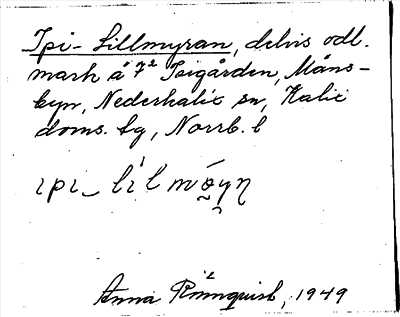 Ipi-Lillmyran, delvis odl.
mark å 7² Ipigården, Måns-
byn, Nederkalix sn, Kalix
doms. tg, Norrb. l
ıpı_ lil
Anna Rönnquist, 1949